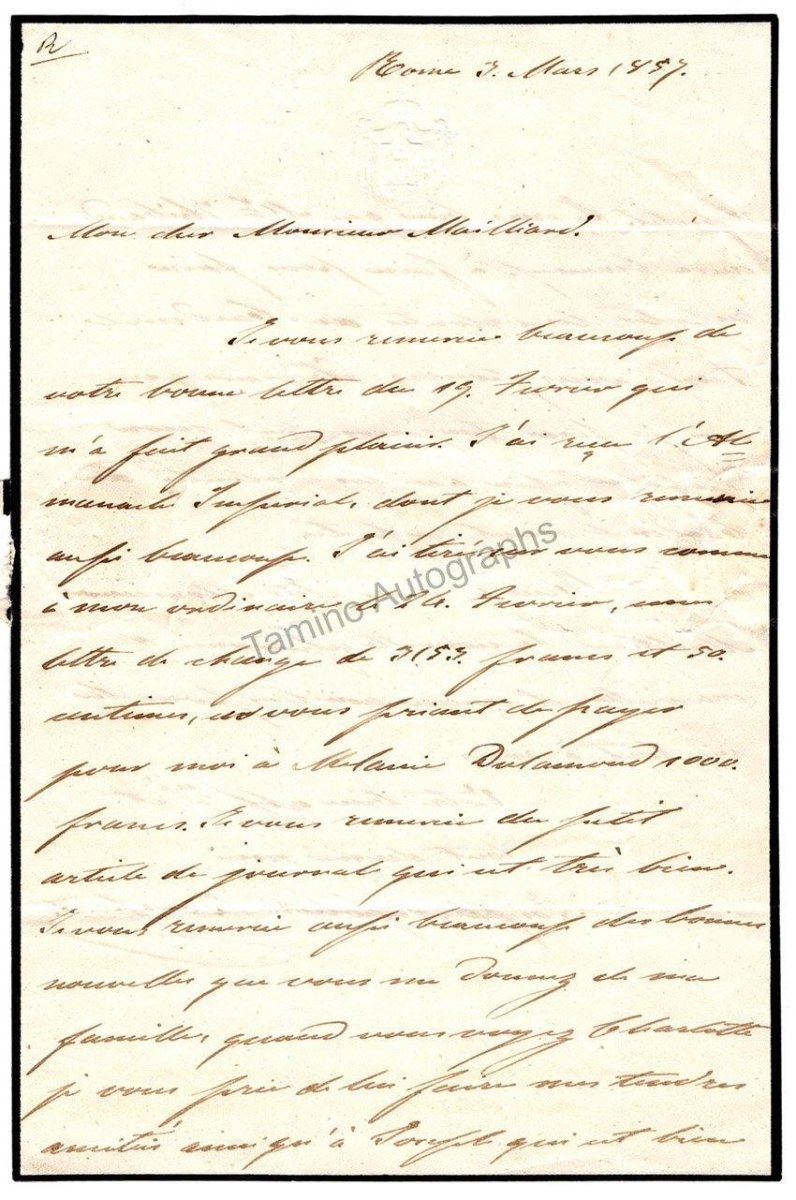 R
Rome 3. Mars 1857.
Mon cher Monsieur Mailliard.
Je vous remercie beaucoup de
votre bonne lettre du 19. Fevrier qui
m'a fait grand plaisir. J'ai reçu l'Al
manach Imperial, dont je vous remercie
aussi beaucoup. J'ai tiré sur vous comme
à mon ordinaire le 24. Fevrier, une
lettre de change de 3153. francs et 50.
centimes, en vous priant de payer
pour moi à Melanie Dulamond 1000.
francs. Je vous remercie du petit
article de journal qui est très bien.
Je vous remercie aussi beaucoup des bonnes
nouvelles que vous me donnez de ma
famille, quand vous voyez Charlotte
je vous prie de lui faire mes tendres
amitiés ainsi qu'à Joseph qui est bien
Tamino Autographs